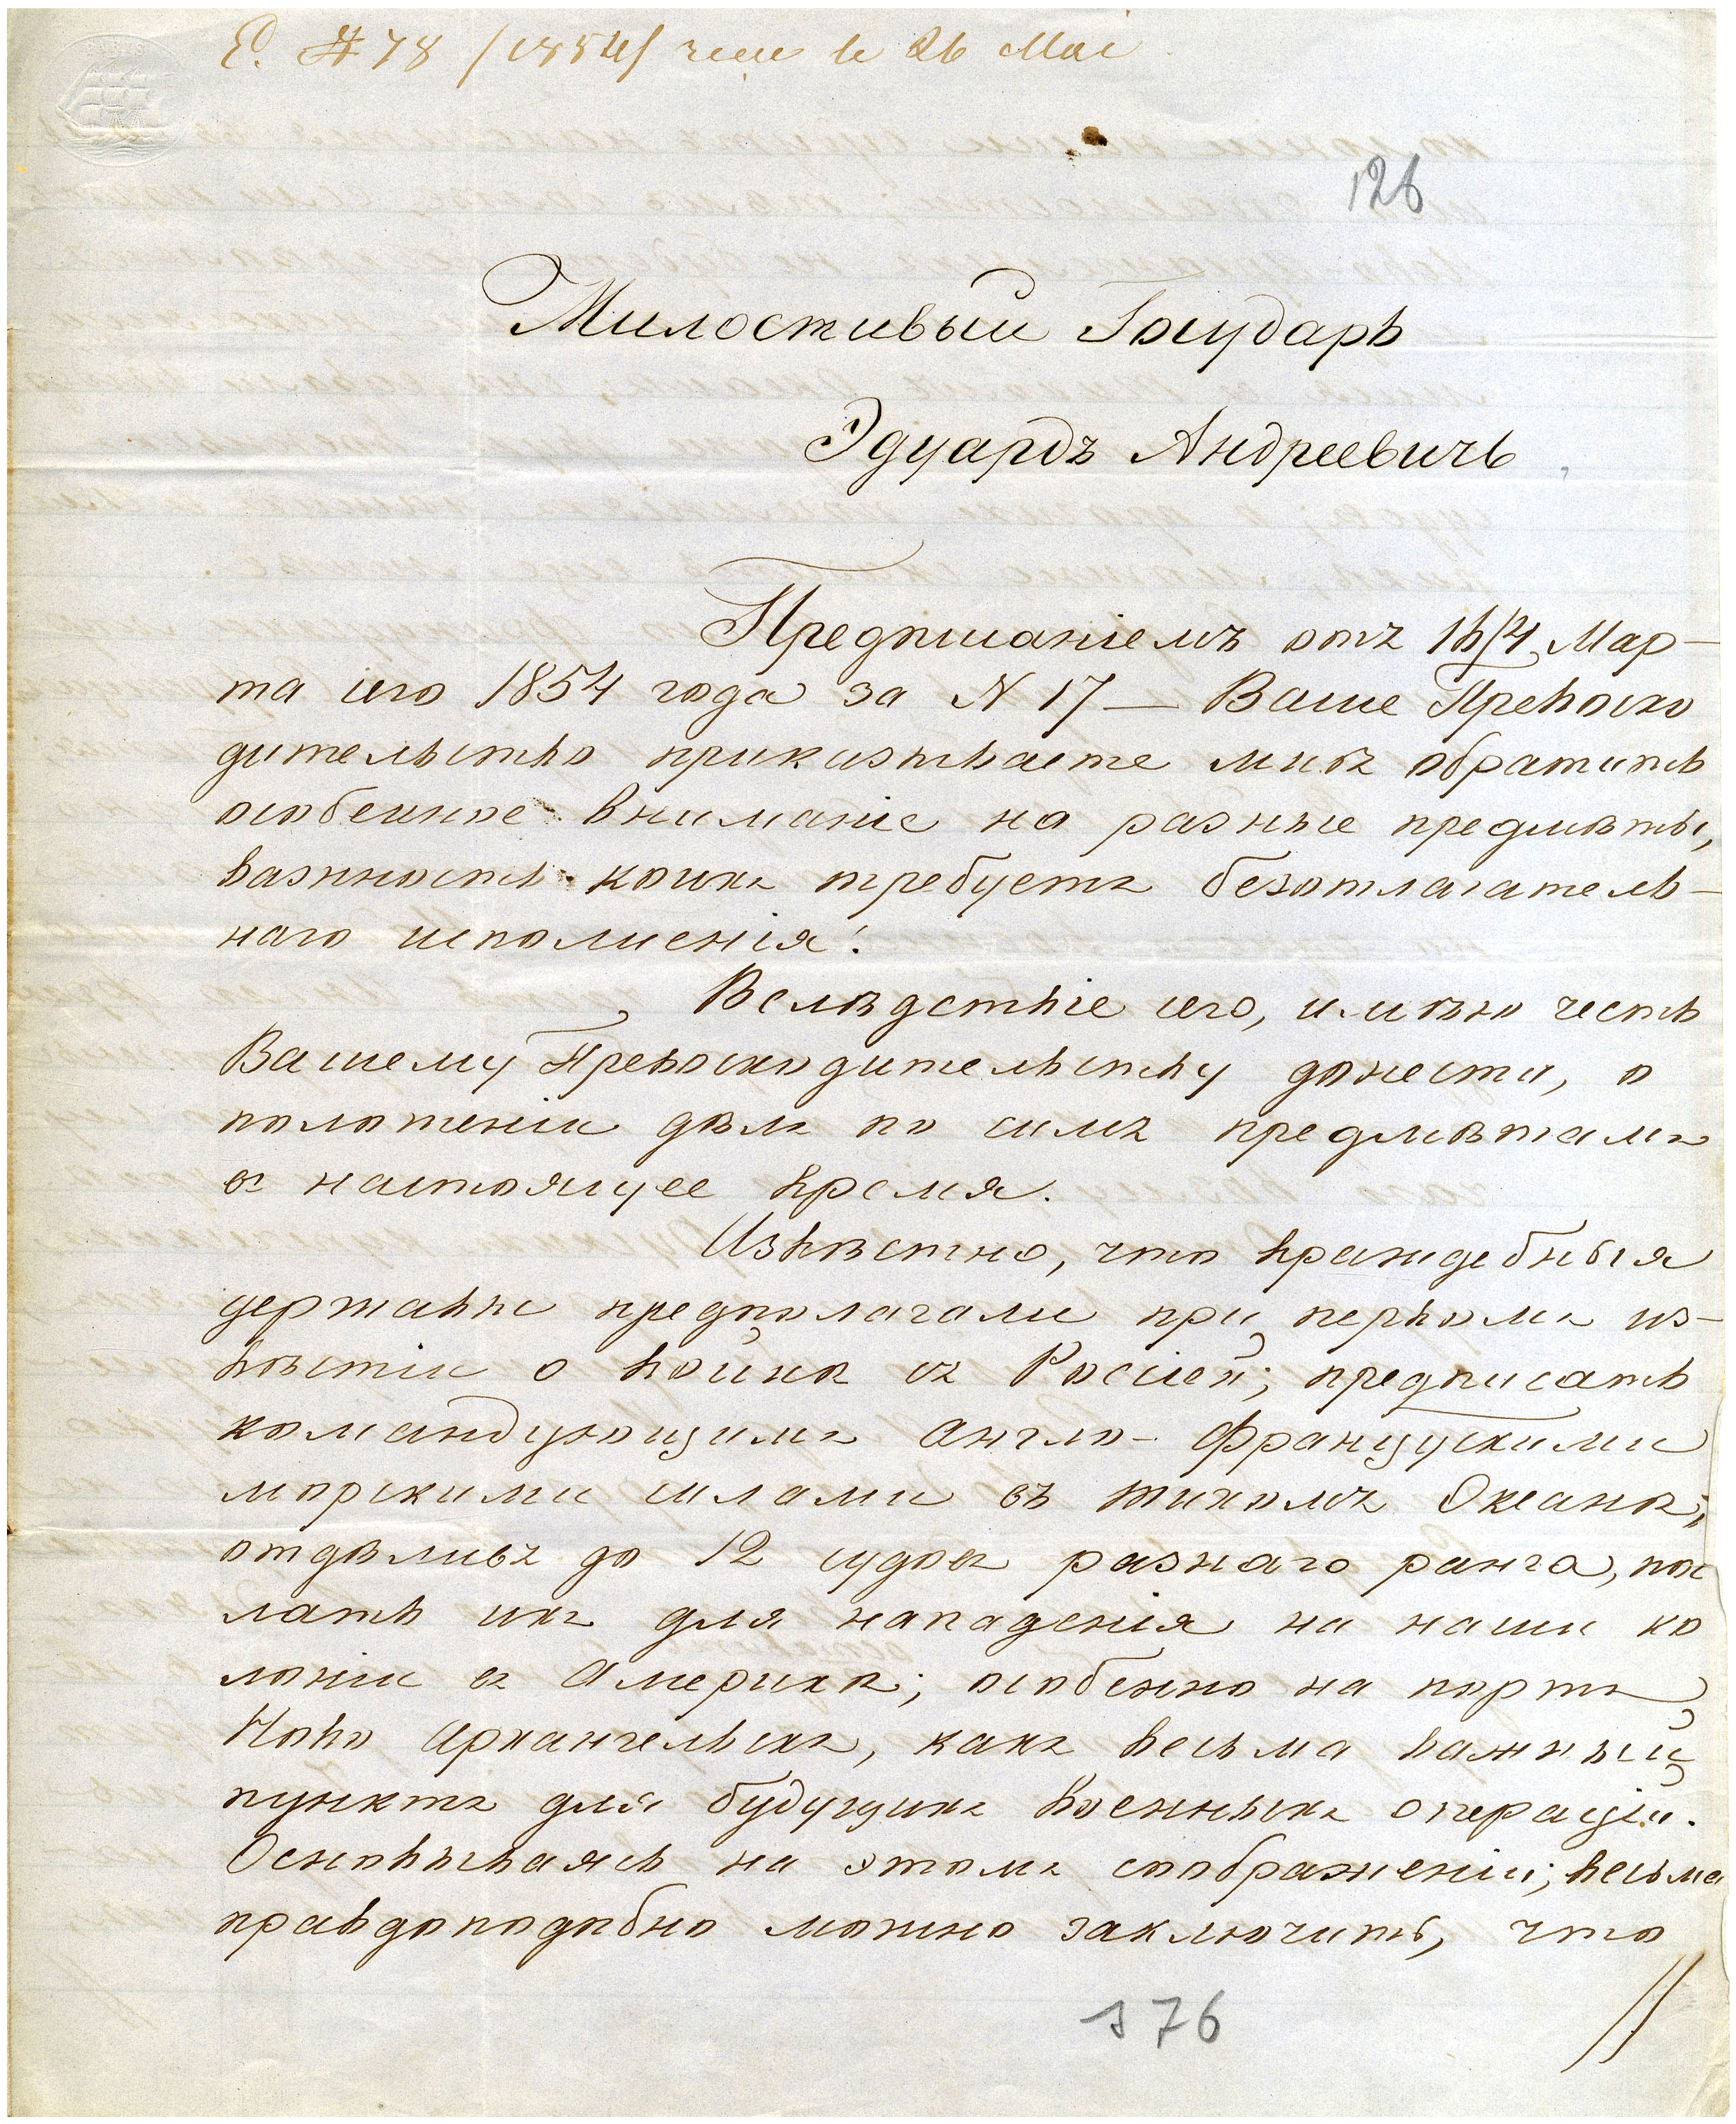 E. # 78 /1854/ reçu le 26 Mai
126
Милостивый Государь
Эдуардъ Андреевичь
Предписаніемъ отъ Мар-
та сего 1854 года за N 17 — Ваше Превосхо
дительство приказываете мнѣ обратить
особенное вниманіе на разные предмѣты,
важность коихъ требуетъ безотлагатель-
наго исполненія.
Вслѣдствіе сего, имѣю честь
Вашему Превосходительству донести, о
положеніи дѣлъ по симъ предмѣтамъ
въ настоящее время.
Извѣстно, что враждебныя
державы предполагали при первомъ из-
вѣстіи о войнѣ съ Росіей; предписать
командующимъ Англо-Французскими
морскими силами въ тихомъ Океанѣ;
отдѣливъ до 12 судовъ разнаго ранга, пос
лать ихъ для нападенія на наши ко
лоніи въ Америкѣ; особенно на портъ
Ново Архангельскъ, какъ весьма важный
пунктъ для будущихъ военныхъ операцій.
Основываясь на этомъ соображеніи; весьма
правдоподобно можно заключить, что
176